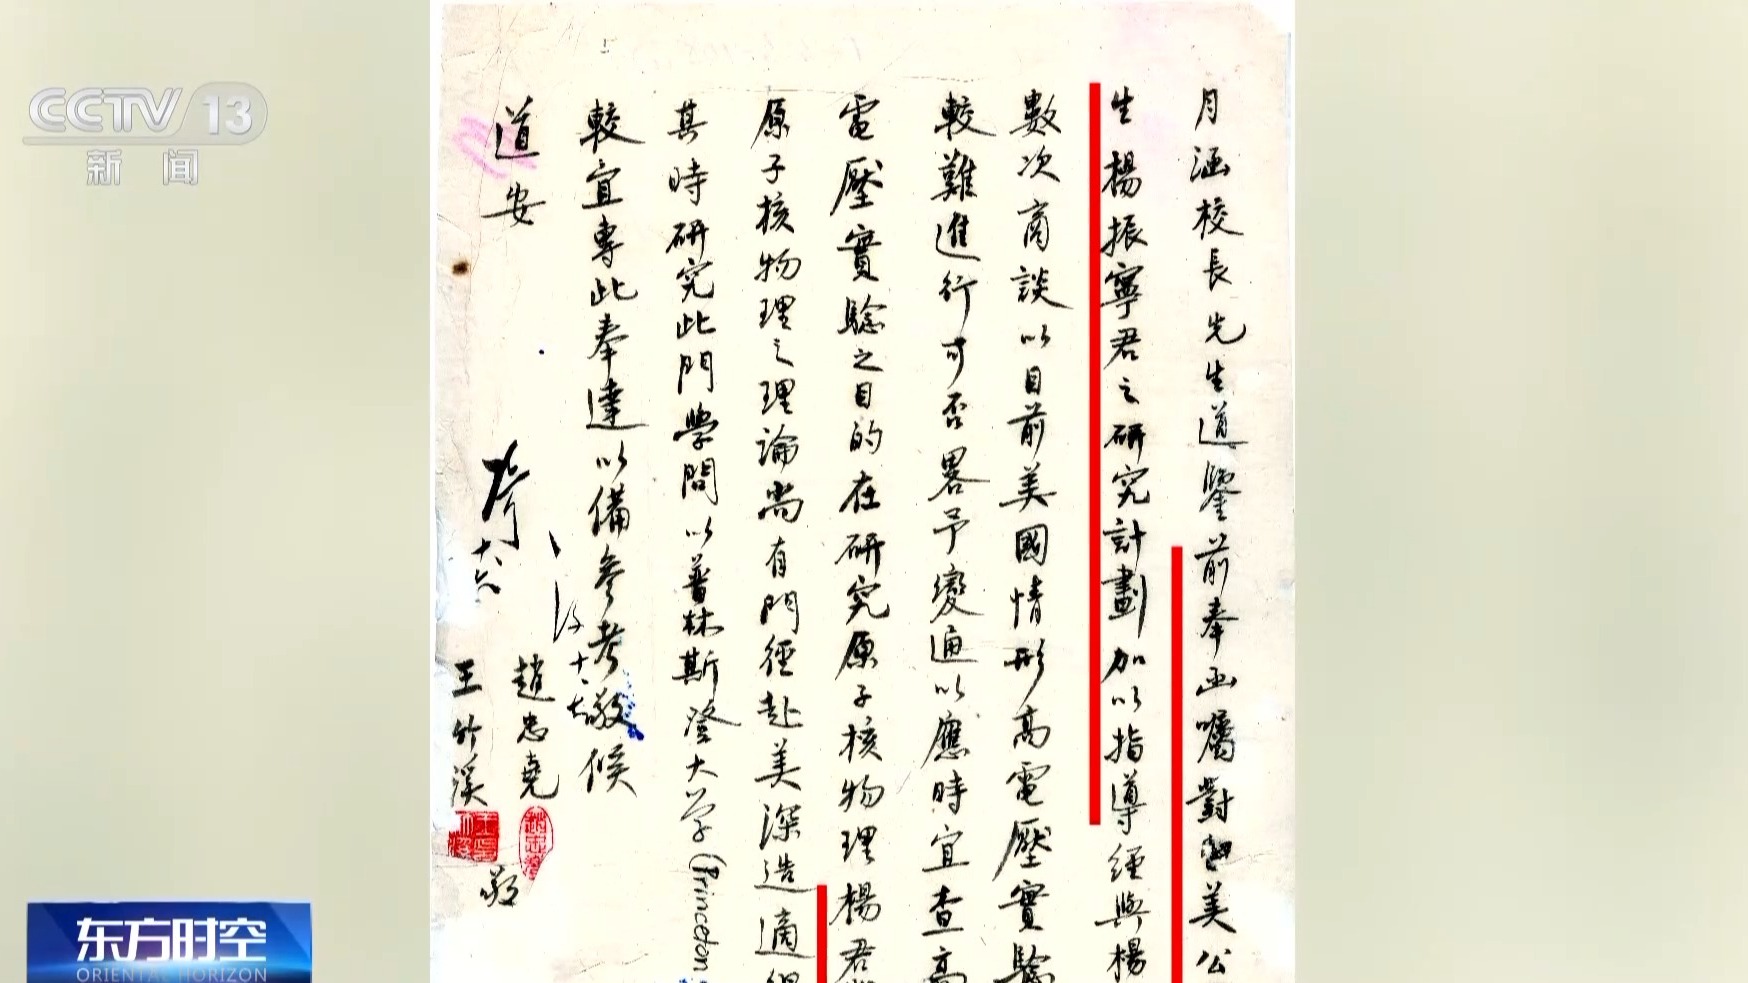 CCTV 13
新闻
月涵校長先生道鑒前奉函囑對留美公
生楊振寧君之研究計劃加以指導經與楊
數次商談以目前美國情形高電壓實驗
較難進行可否畧予變通以應時宜查高
電壓實驗之目的在研究原子核物理楊君
原子核物理之理論尚有門徑赴美深造適
其時研究此門學問以普林斯登大学(Princeton
較宜專此奉達以備參考敬候
道安
趙忠堯
王竹溪
敬
十六
东方时空
ORIENTAL HORIZON